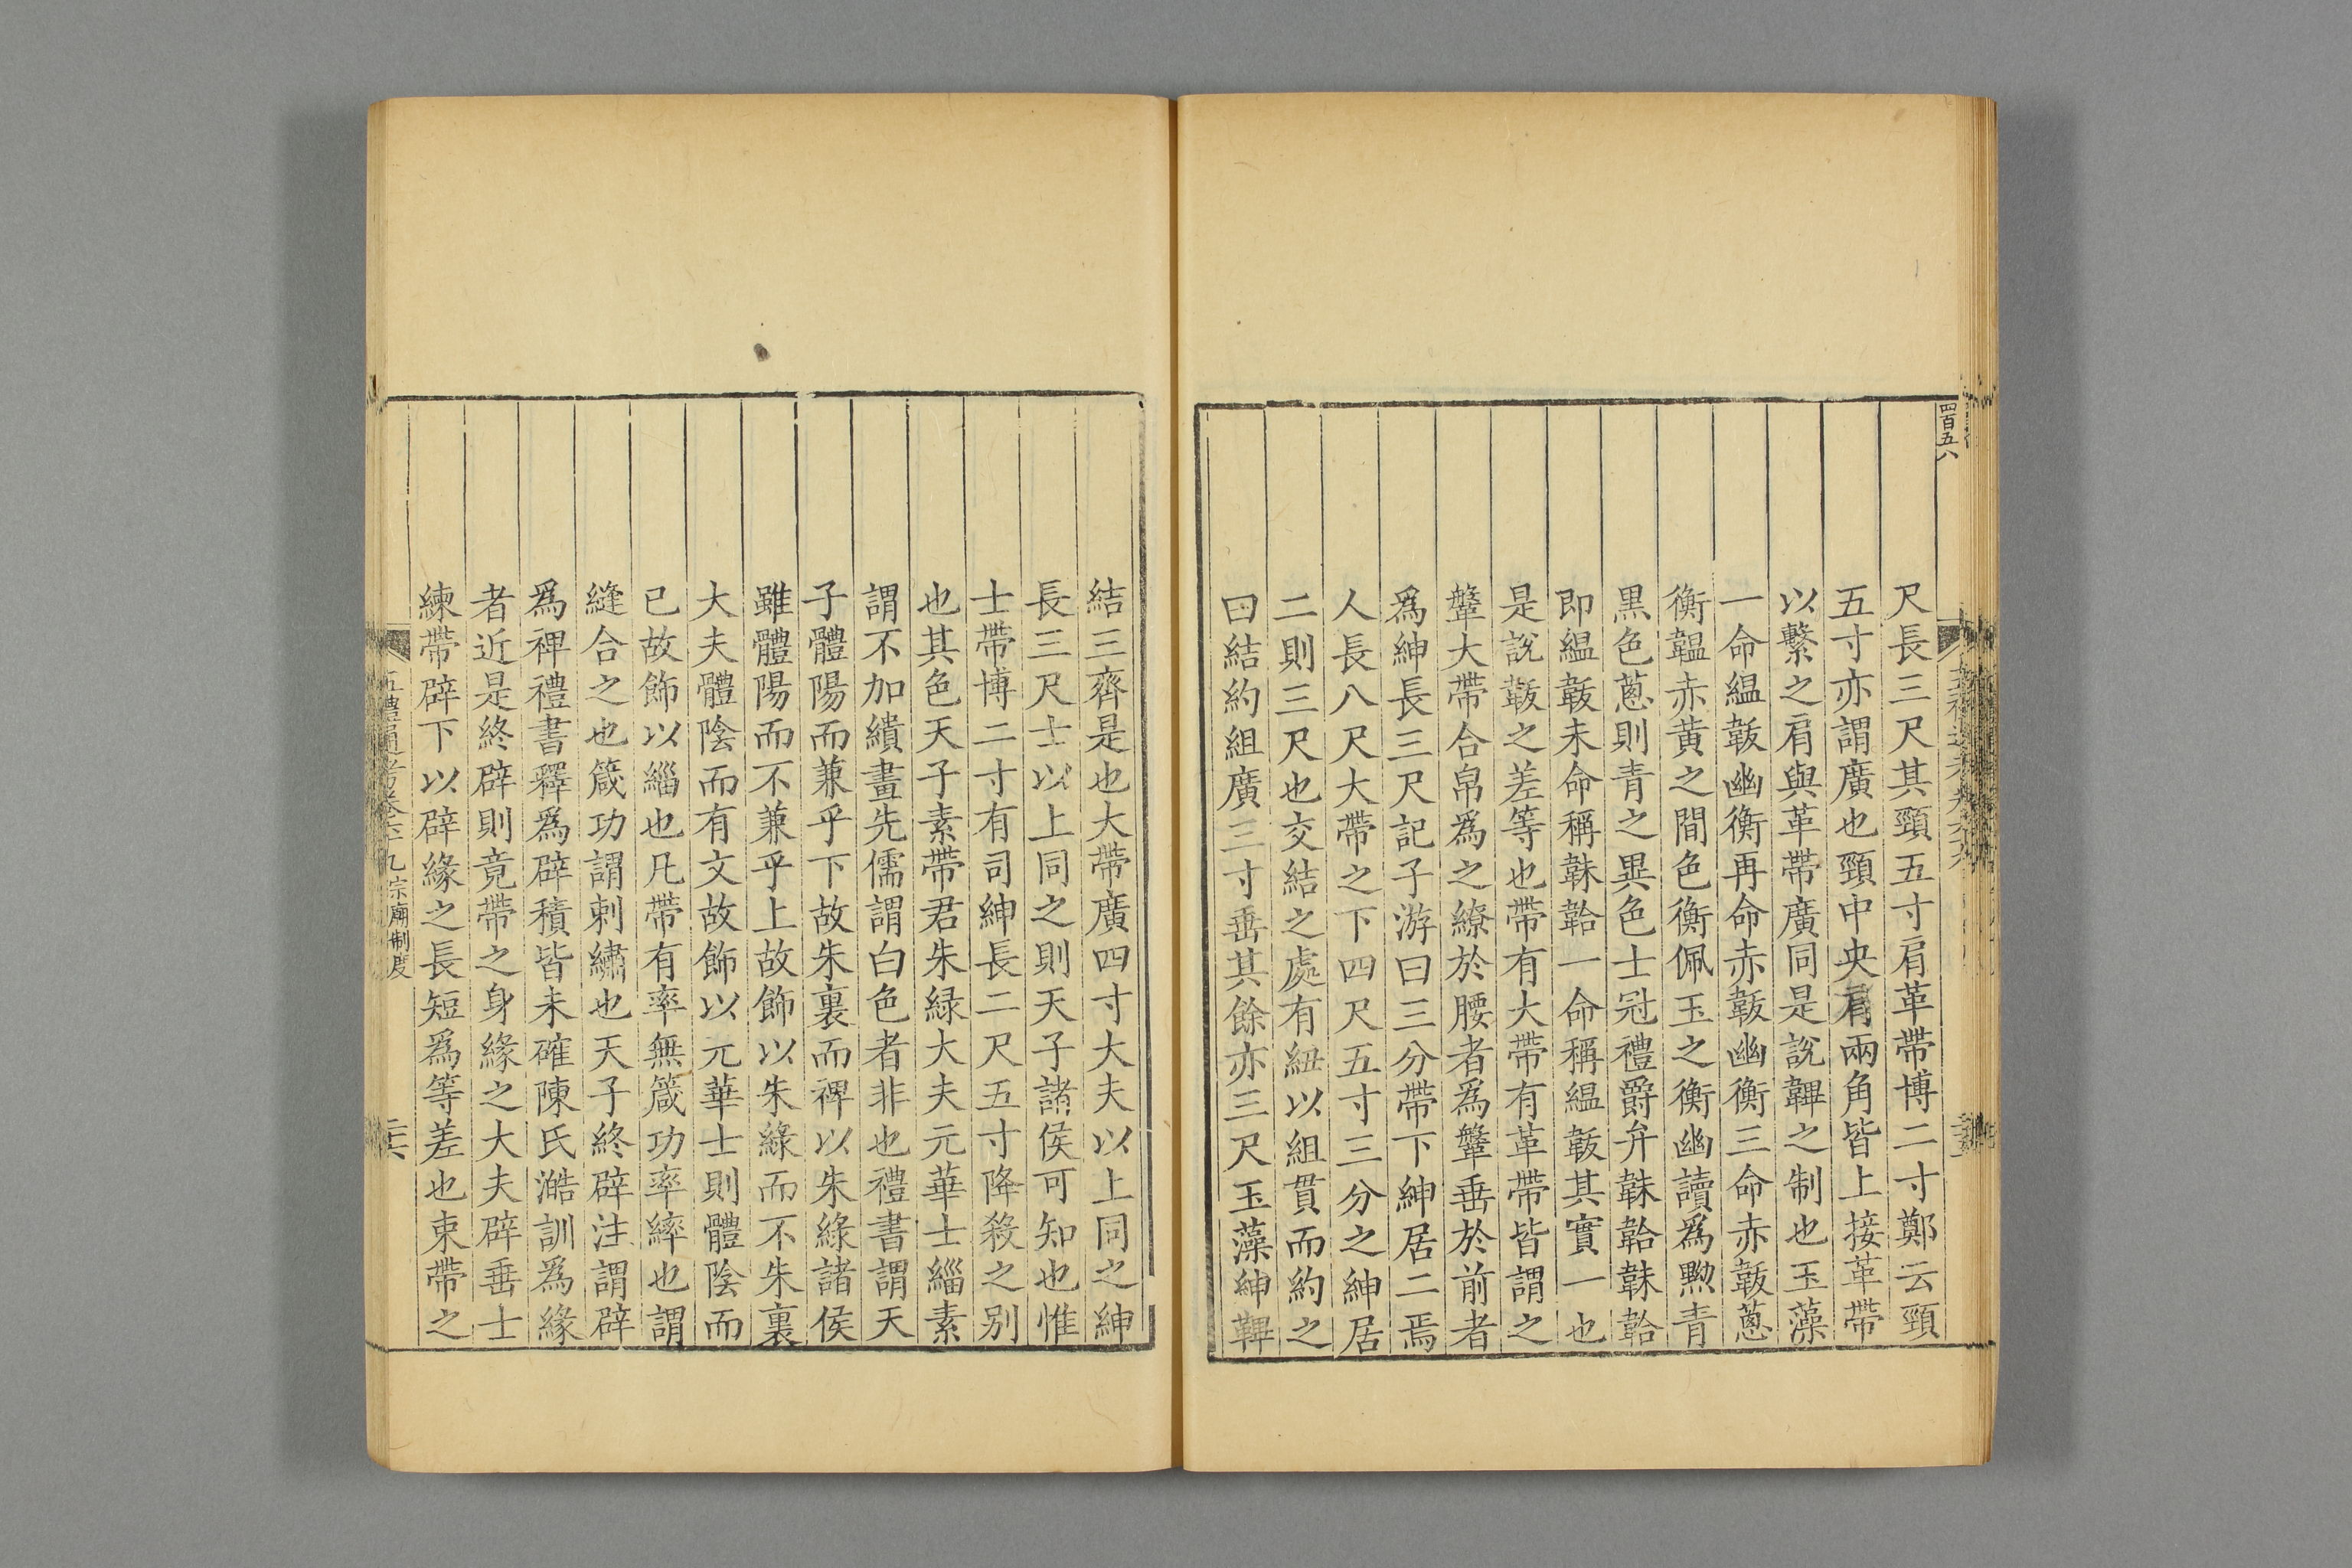 四百五八
尺長三尺其頸五寸肩革帶博二寸鄭云頸
五寸亦謂廣也頸中央肩兩角皆上接革帶
以繫之肩與革帶廣同是說韠之制也玉藻
一命縕韍幽衡再命赤韍幽衡三命赤韍蔥
衡韞赤黃之間色衡佩玉之衡幽讀爲黝青
黒色蔥則青之異色士冠禮爵弁韎韐韎韐
即縕韍未命稱韎韐一命稱縕韍其實一也
是說韍之差等也帶有大帶有革帶皆謂之
鞶大帶合帛爲之繚於腰者爲鞶垂於前者
爲紳長三尺記子游曰三分帶下紳居二焉
人長八尺大帶之下四尺五寸三分之紳居
二則三尺也交結之處有紐以組貫而約之
曰結約組廣三寸垂其餘亦三尺玉藻紳韠
結三齊是也大帶廣四寸大夫以上同之紳
長三尺士以上同之則天子諸侯可知也惟
士帶博二寸有司紳長二尺五寸降殺之別
也其色天子素帶君朱綠大夫元華士緇素
謂不加繢畫先儒謂白色者非也禮書謂天
子體陽而兼乎下故朱裏而裨以朱綠諸侯
雖體陽而不兼乎上故飾以朱綠而不朱裏
大夫體陰而有文故飾以元華士則體陰而
已故飾以緇也凡帶有率無箴功率繂也謂
縫合之也箴功謂刺繡也天子終辟注謂辟
爲裨禮書釋爲辟積皆未確陳氏澔訓爲緣
者近是終辟則竟帶之身緣之大夫辟垂士
練帶辟下以辟緣之長短爲等差也束帶之
五禮通考卷六十九宗廟制度